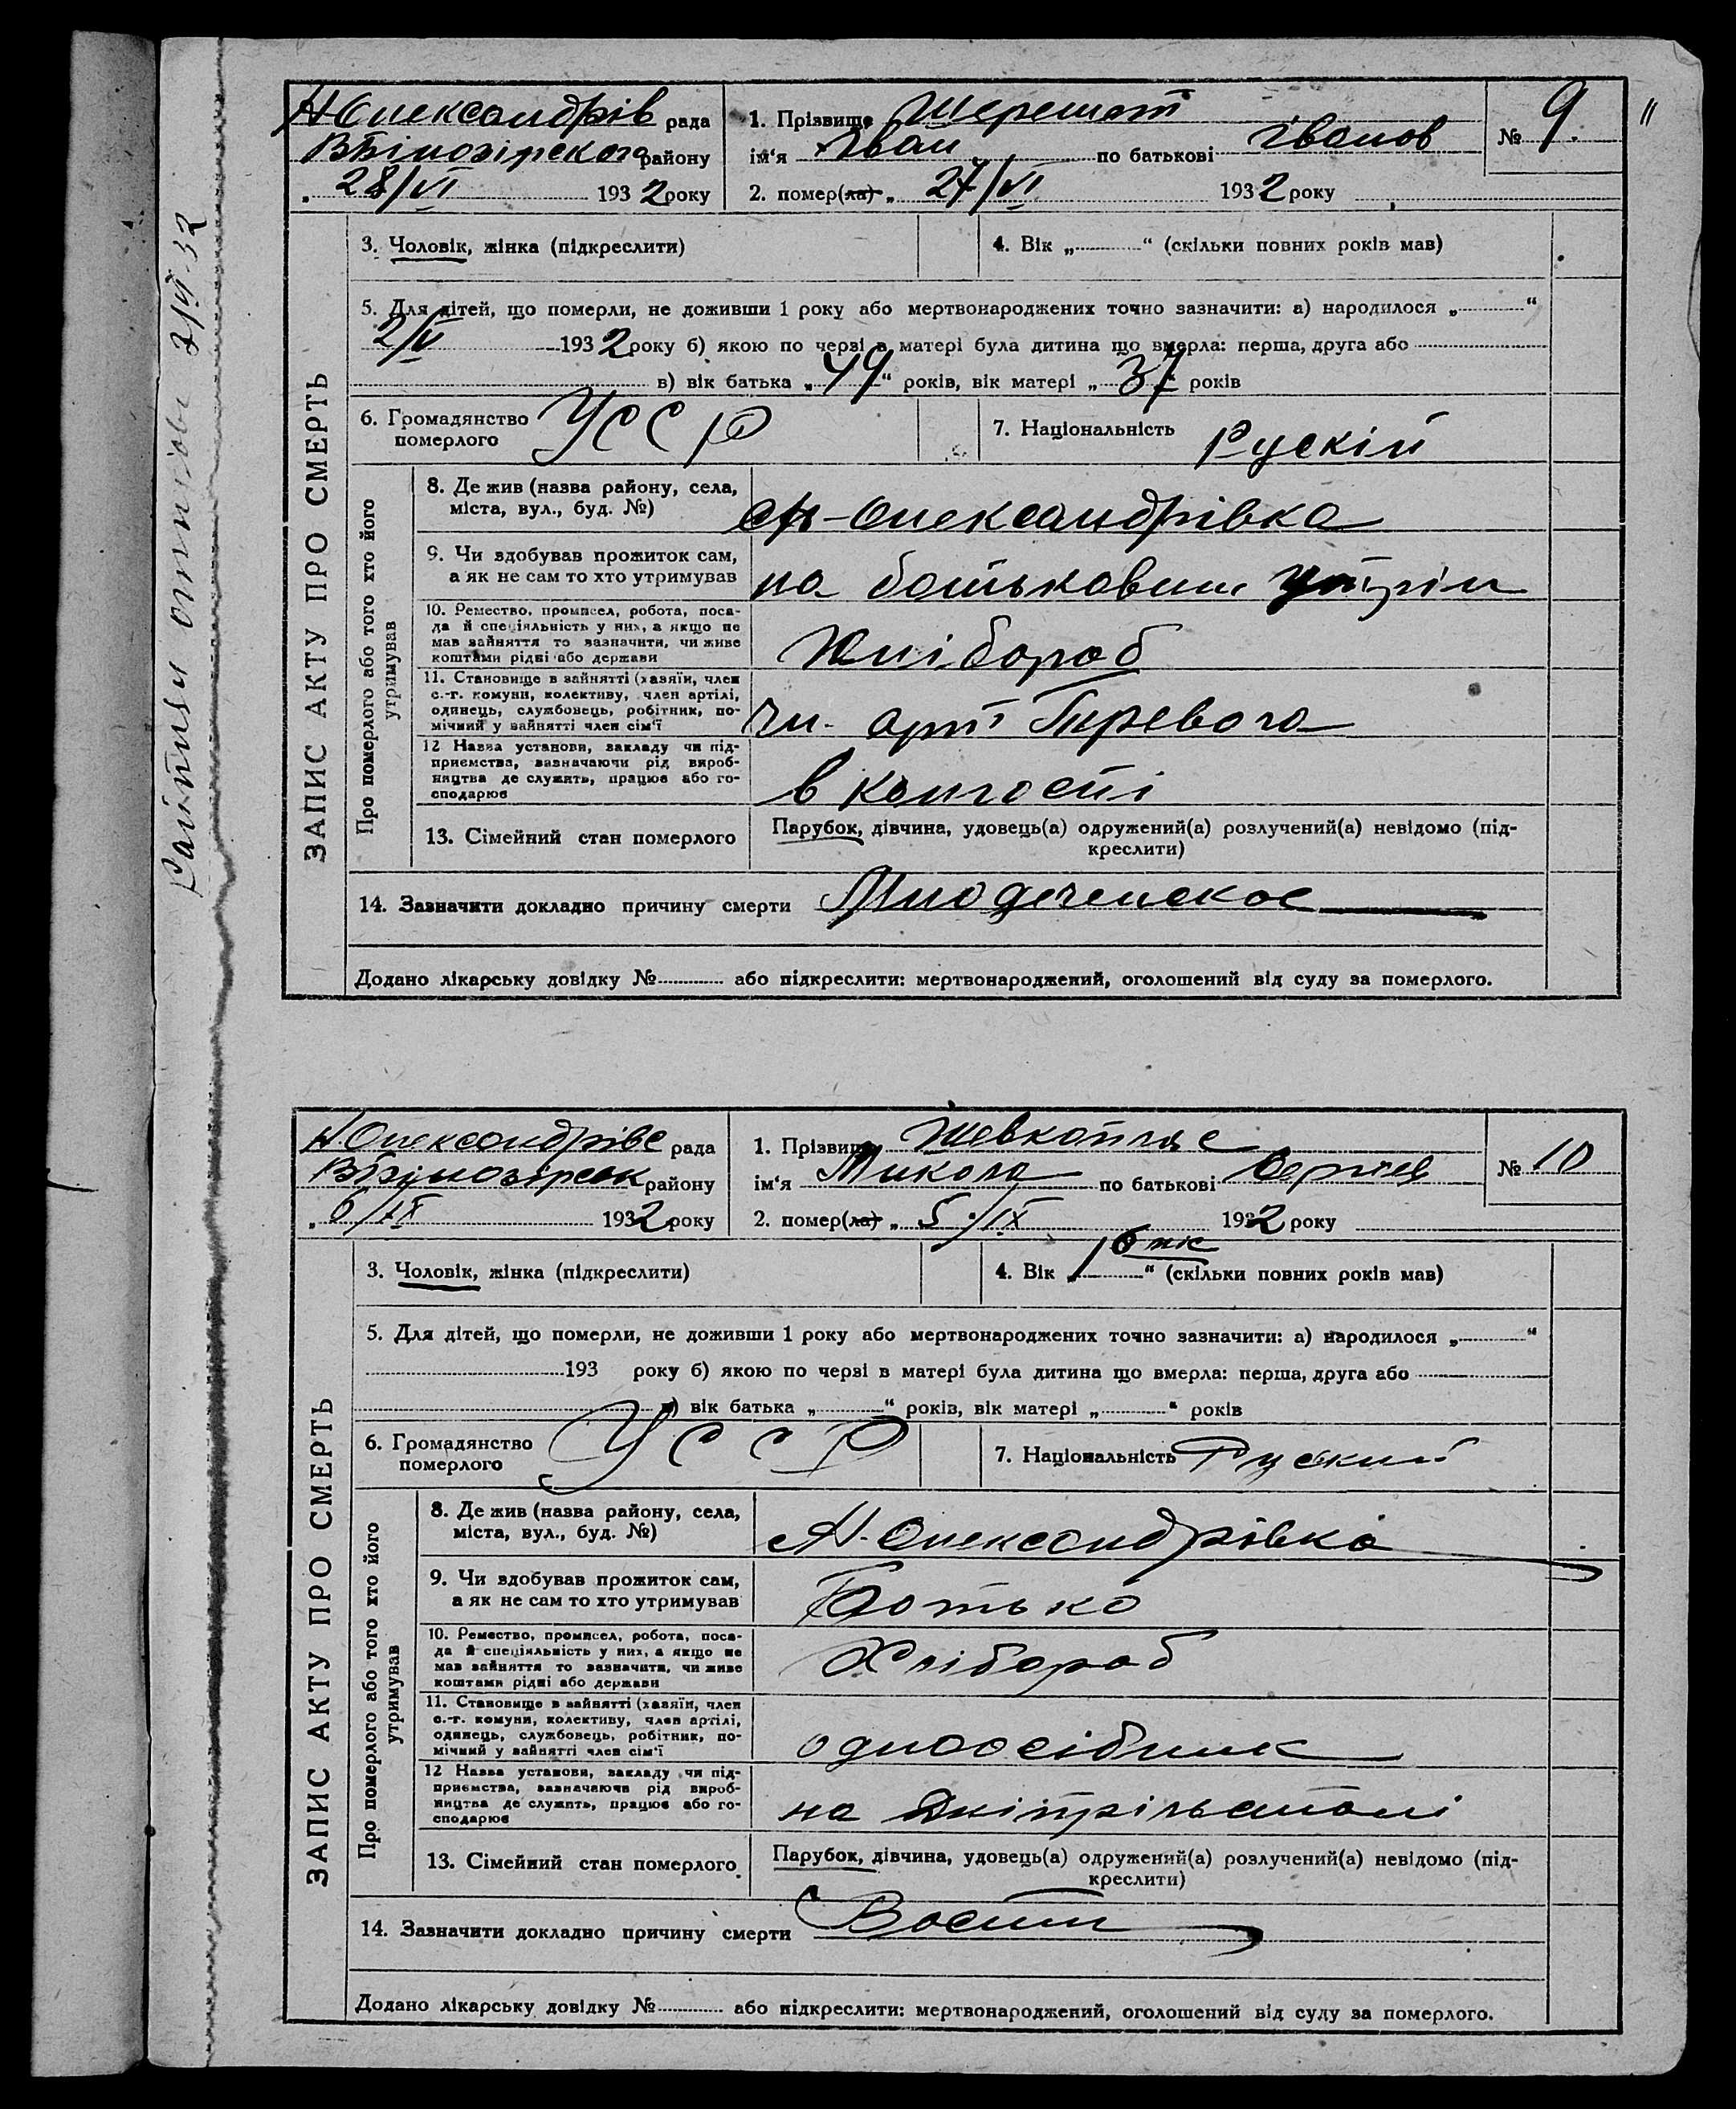 Н Олександрів рада
ВБілозірского району
„ 28/VI 1932 року
1. Прізвище Шеремет
ім'я Іван по батькові Іванов
2. помер(ла) „ 27/VI 1932 року
№ 9.
"
ЗАПИС АКТУ ПРО СМЕРТЬ
3. Чоловік, жінка (підкреслити)
4. Вік „ “ (скільки повних років мав)
5. Для дітей, що померли, не доживши 1 року або мертвонароджених точно зазначити: а) народилося „ “
2/VI 1932 року б) якою по черзі в матері була дитина що вмерла: перша, друга або
в) вік батька „49“ років, вік матері „37“ років
6. Громадянство
померлого УССР
7. Національність Рускій
Про померлого або того хто його
утримував
8. Де жив (назва району, села,
міста, вул., буд. №)
Н-Олександрівка
9. Чи здобував прожиток сам,
а як не сам то хто утримував
на батьковим утрім
10. Ремество, промисел, робота, поса-
да й спеціяльність у них, а якщо не
мав зайняття то зазначити, чи живе
коштами рідні або держави
Хлібороб
11. Становище в зайнятті (хазяїн, член
с.-г. комуни, колективу, член артілі,
одинець, службовець, робітник, по-
мічний у зайнятті член сім'ї
чл. арт
12 Назва установи, закладу чи під-
приємства, зазначаючи рід вироб-
ництва де служить, працює або го-
сподарює
в колгоспі
13. Сімейний стан померлого
Парубок, дівчина, удовець(а) одружений(а) розлучений(а) невідомо (під-
креслити)
14. Зазначити докладно причину смерти Младеченское
Додано лікарську довідку № або підкреслити: мертвонароджений, оголошений від суду за померлого.
Н.Олександрівс рада
ВБілозірськ району
„ 6/IX 1932 року
1. Прізвище Шевкопляс
ім'я Микола по батькові Сергіев
2. помер(ла) „ 5/IX 1932 року
№ 10
ЗАПИС АКТУ ПРО СМЕРТЬ
3. Чоловік, жінка (підкреслити)
4. Вік „ “ (скільки повних років мав)
5. Для дітей, що померли, не доживши 1 року або мертвонароджених точно зазначити: а) народилося „ “
193 року б) якою по черзі в матері була дитина що вмерла: перша, друга або
в) вік батька „ “ років, вік матері „ “ років
6. Громадянство
померлого УССР
7. Національність Руский
Про померлого або того хто його
утримував
8. Де жив (назва району, села,
міста, вул., буд. №)
Н-Олександрівка
9. Чи здобував прожиток сам,
а як не сам то хто утримував
Ботько
10. Ремество, промисел, робота, поса-
да й спеціяльність у них, а якщо не
мав зайняття то зазначити, чи живе
коштами рідні або держави
Хлібороб
11. Становище в зайнятті (хазяїн, член
с.-г. комуни, колективу, член артілі,
одинець, службовець, робітник, по-
мічний у зайнятті член сім'ї
одноосібник
12 Назва установи, закладу чи під-
приємства, зазначаючи рід вироб-
ництва де служить, працює або го-
сподарює
на
13. Сімейний стан померлого
Парубок, дівчина, удовець(а) одружений(а) розлучений(а) невідомо (під-
креслити)
14. Зазначити докладно причину смерти
Додано лікарську довідку № або підкреслити: мертвонароджений, оголошений від суду за померлого.